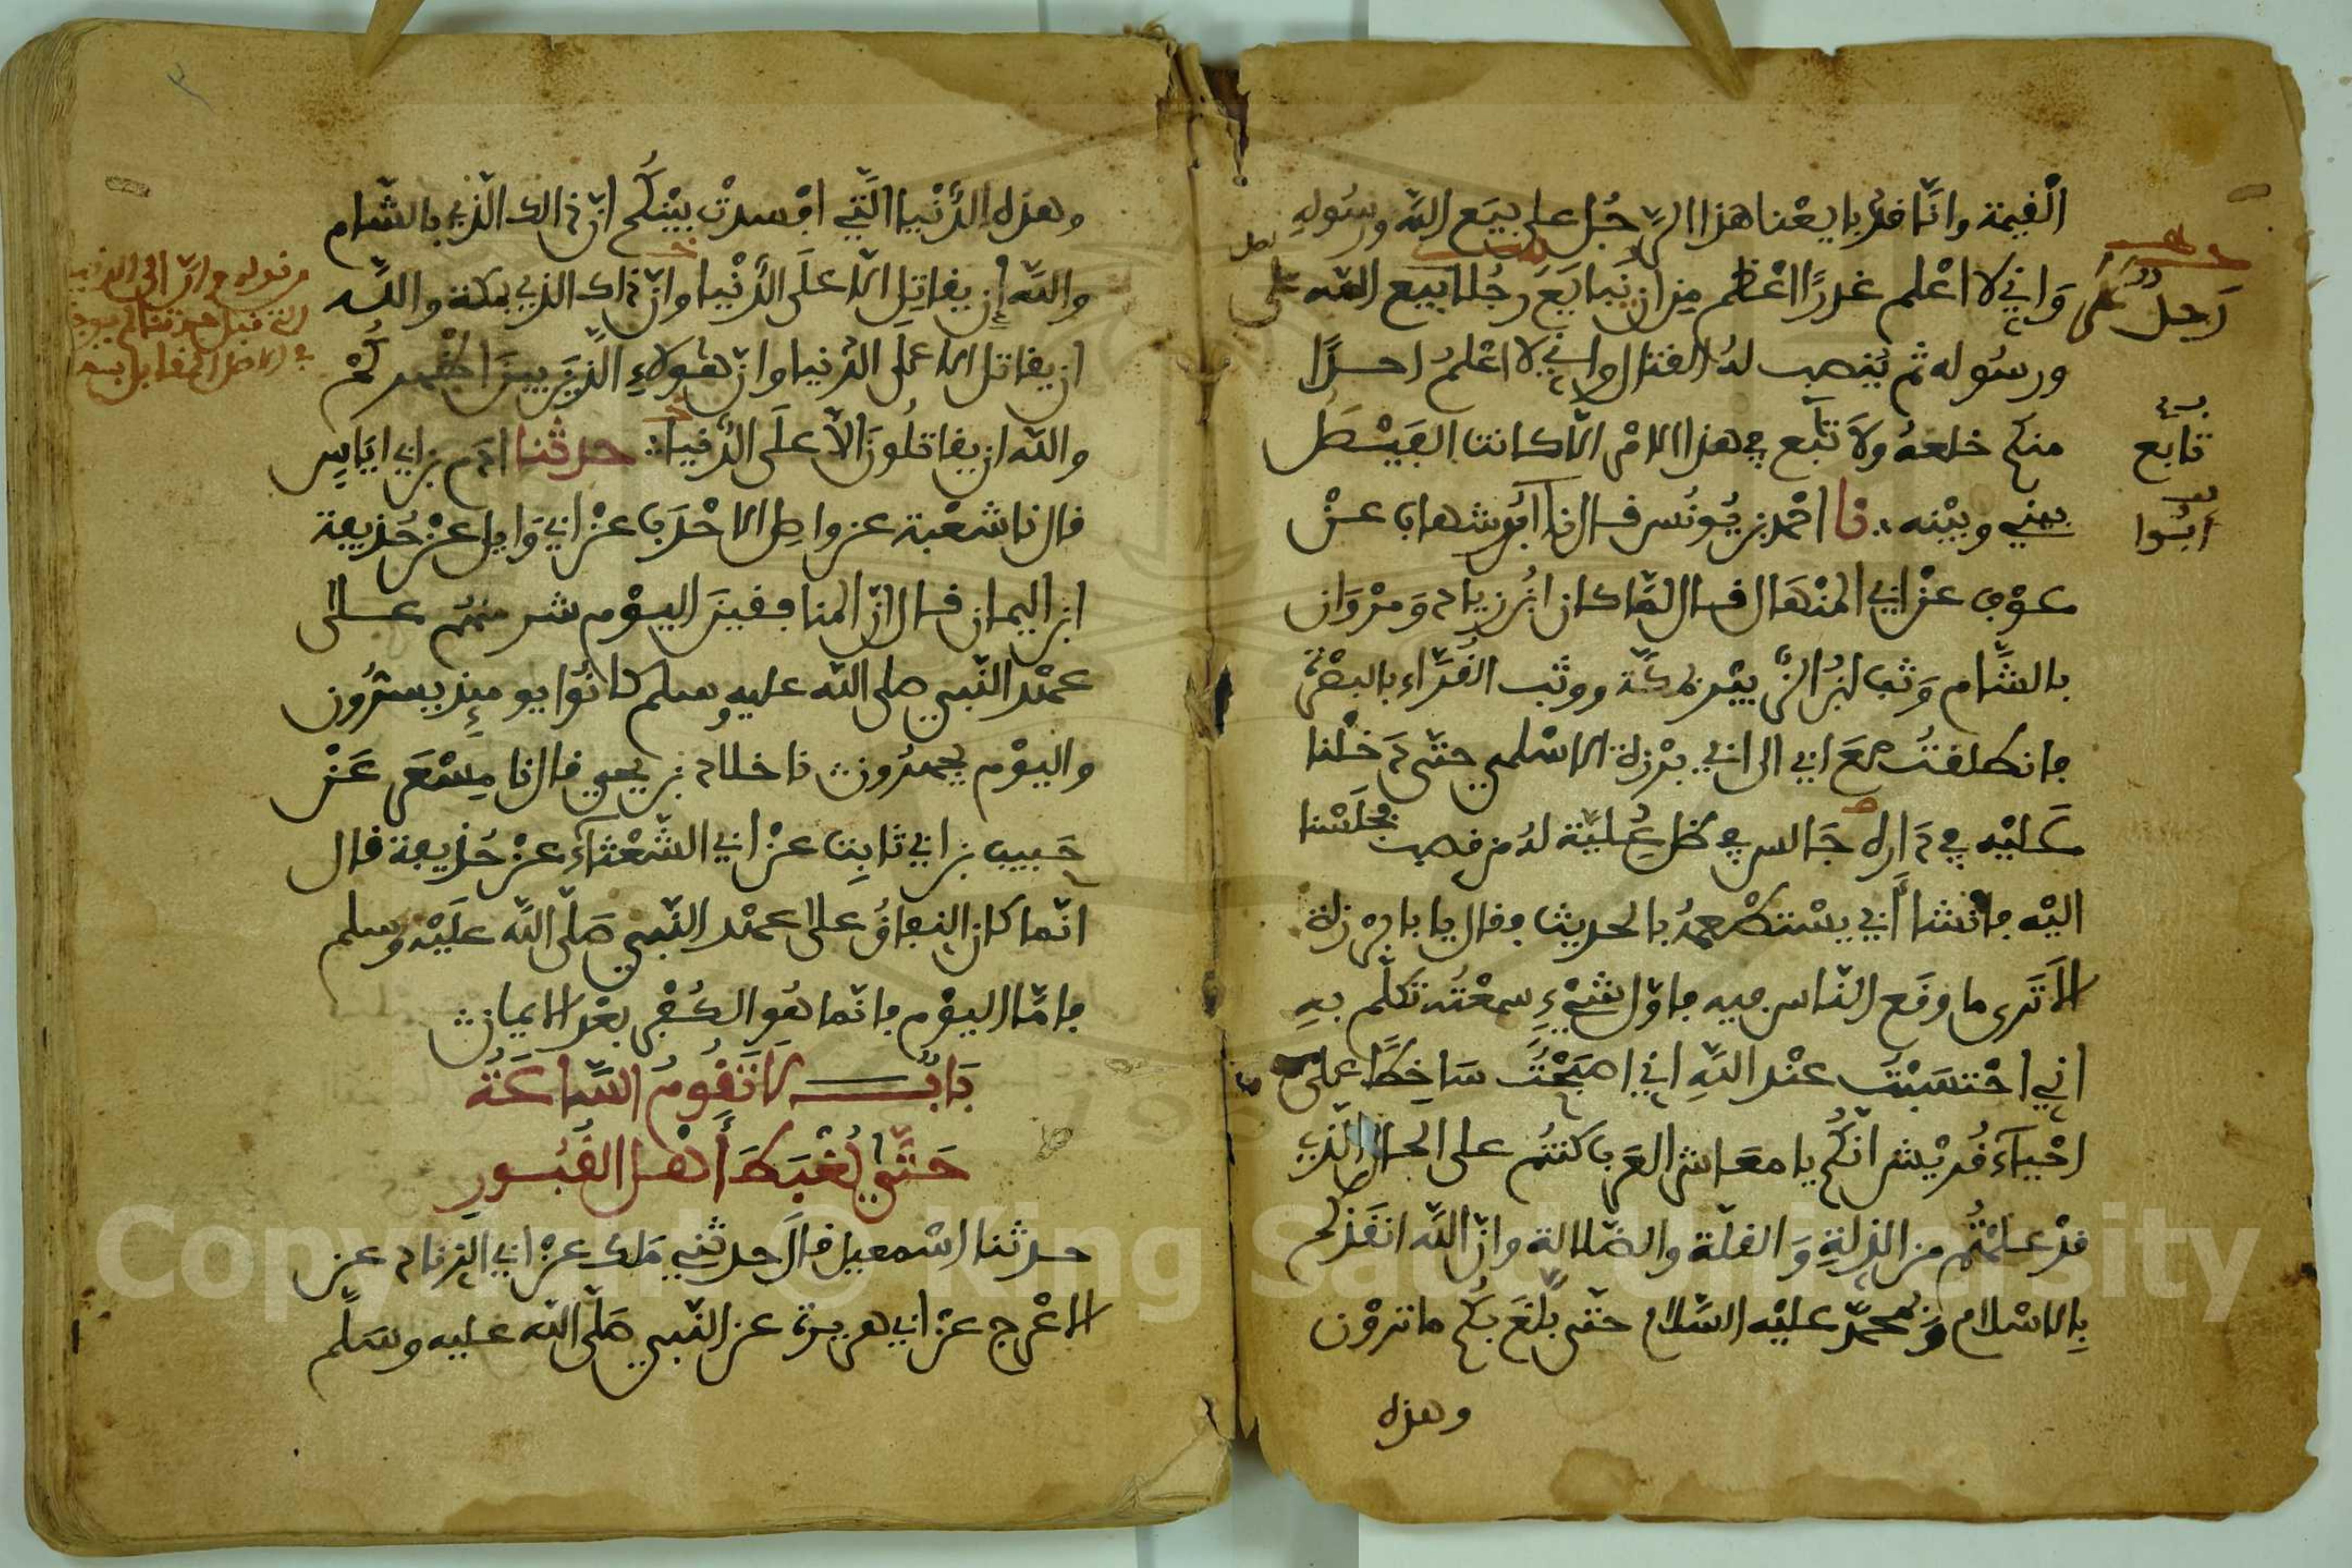 القيمة وانا قد بايعنا هذا الرجل على بيع الله ورسوله
واني لا اعلم غدرا اعظم من ان نبايع رجلا ببيع الله على
رجل على
ورسوله ثم ينصب له القتال واني لا اعلم احدا
منكم خلعه ولا تابع في هذا الامر الا كانت الفيصل
تابع
بيني وبينه نا احمد بن يونس قال نا ابو شهاب عن
ابوا
عوف عن ابي المنهال قال لما كان ابن زياد ومروان
بالشام وثب ابن الزبير بمكة ووثب القراء بالبصرة
فانطلقت مع ابي الى ابي برزة الاسلمي حتى دخلنا
عليه في داره جالس في ظل علية له من قصب فجلسنا
اليه فانشا ابي يستطعمه بالحديث فقال يا با برزة
الا ترى ما وقع الناس فيه فاول شيء سمعته تكلم به
اني احتسبت عند الله اني اصبحت ساخطا على
احياء قريش انكم يا معاشر العرب كنتم على الحال الذي
قد علمتم من الذلة والقلة والضلالة وان الله انقذكم
بالاسلام وبمحمد عليه السلام حتى بلغ بكم ما ترون
وهذه
وهذه الدنيا التي افسدت بينكم ان ذالك الذي بالشام
والله ان يقاتل الا على الدنيا وان ذاك الذي بمكة والله
ان يقاتل الا على الدنيا وان هؤلاء الذين بين اظهركم
والله ان يقاتلون الا على الدنيا حدثنا ادم بن ابي اياس
قال نا شعبة عن واصل الاحدب عن ابي وايل عن حذيفة
ابن اليمان قال ان المنافقين اليوم شر منهم على
عهد النبي صلى الله عليه وسلم كانوا يومئذ يسرون
واليوم يجهرون نا خلاد بن يحيى قال نا مسعر عن
حبيب بن ابي ثابت عن ابي الشعثاء عن حذيفة قال
انما كان النفاق على عهد النبي صلى الله عليه وسلم
فاما اليوم فانما هو الكفر بعد الايمان
باب لا تقوم الساعة
حتى يغبط أهل القبور
حدثنا اسمعيل قال حدثني ملك عن ابي الزناد عن
الاعرج عن ابي هريرة عن النبي صلى الله عليه وسلم
Copyright © King Saud University